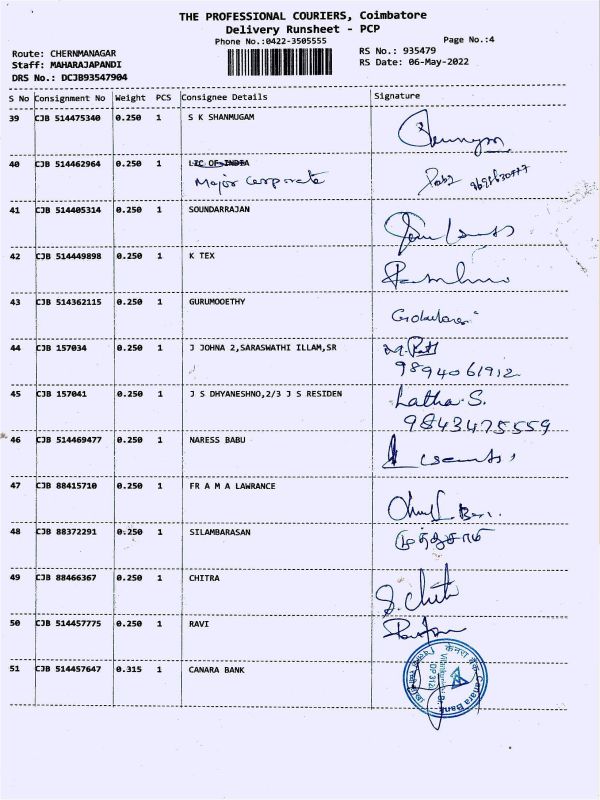 THE PROFESSIONAL COURIERS, Coimbatore
Delivery Runsheet - PCP
Phone No.:0422-3505555
Page No.:4
Route: CHERNMANAGAR
RS No.: 935479
Staff: MAHARAJAPANDI
RS Date: 06-May-2022
DRS No.: DCJB93547904
S No Consignment No Weight PCS Consignee Details Signature
39 CJB 514475340 0.250 1 S K SHANMUGAM
40 CJB 514462964 0.250 1 LIC OF INDIA
Major Corporate
41 CJB 514405314 0.250 1 SOUNDARRAJAN
42 CJB 514449898 0.250 1 K TEX
43 CJB 514362115 0.250 1 GURUMOOETHY
44 CJB 157034 0.250 1 J JOHNA 2,SARASWATHI ILLAM,SR
9894061912
45 CJB 157041 0.250 1 J S DHYANESHNO,2/3 J S RESIDEN Latha. S.
9843475559
46 CJB 514469477 0.250 1 NARESS BABU
47 CJB 88415710 0.250 1 FR A M A LAWRANCE
48 CJB 88372291 0.250 1 SILAMBARASAN முத்துசாமி
49 CJB 88466367 0.250 1 CHITRA
50 CJB 514457775 0.250 1 RAVI
51 CJB 514457647 0.315 1 CANARA BANK
केनरा बैंक Canara Bank